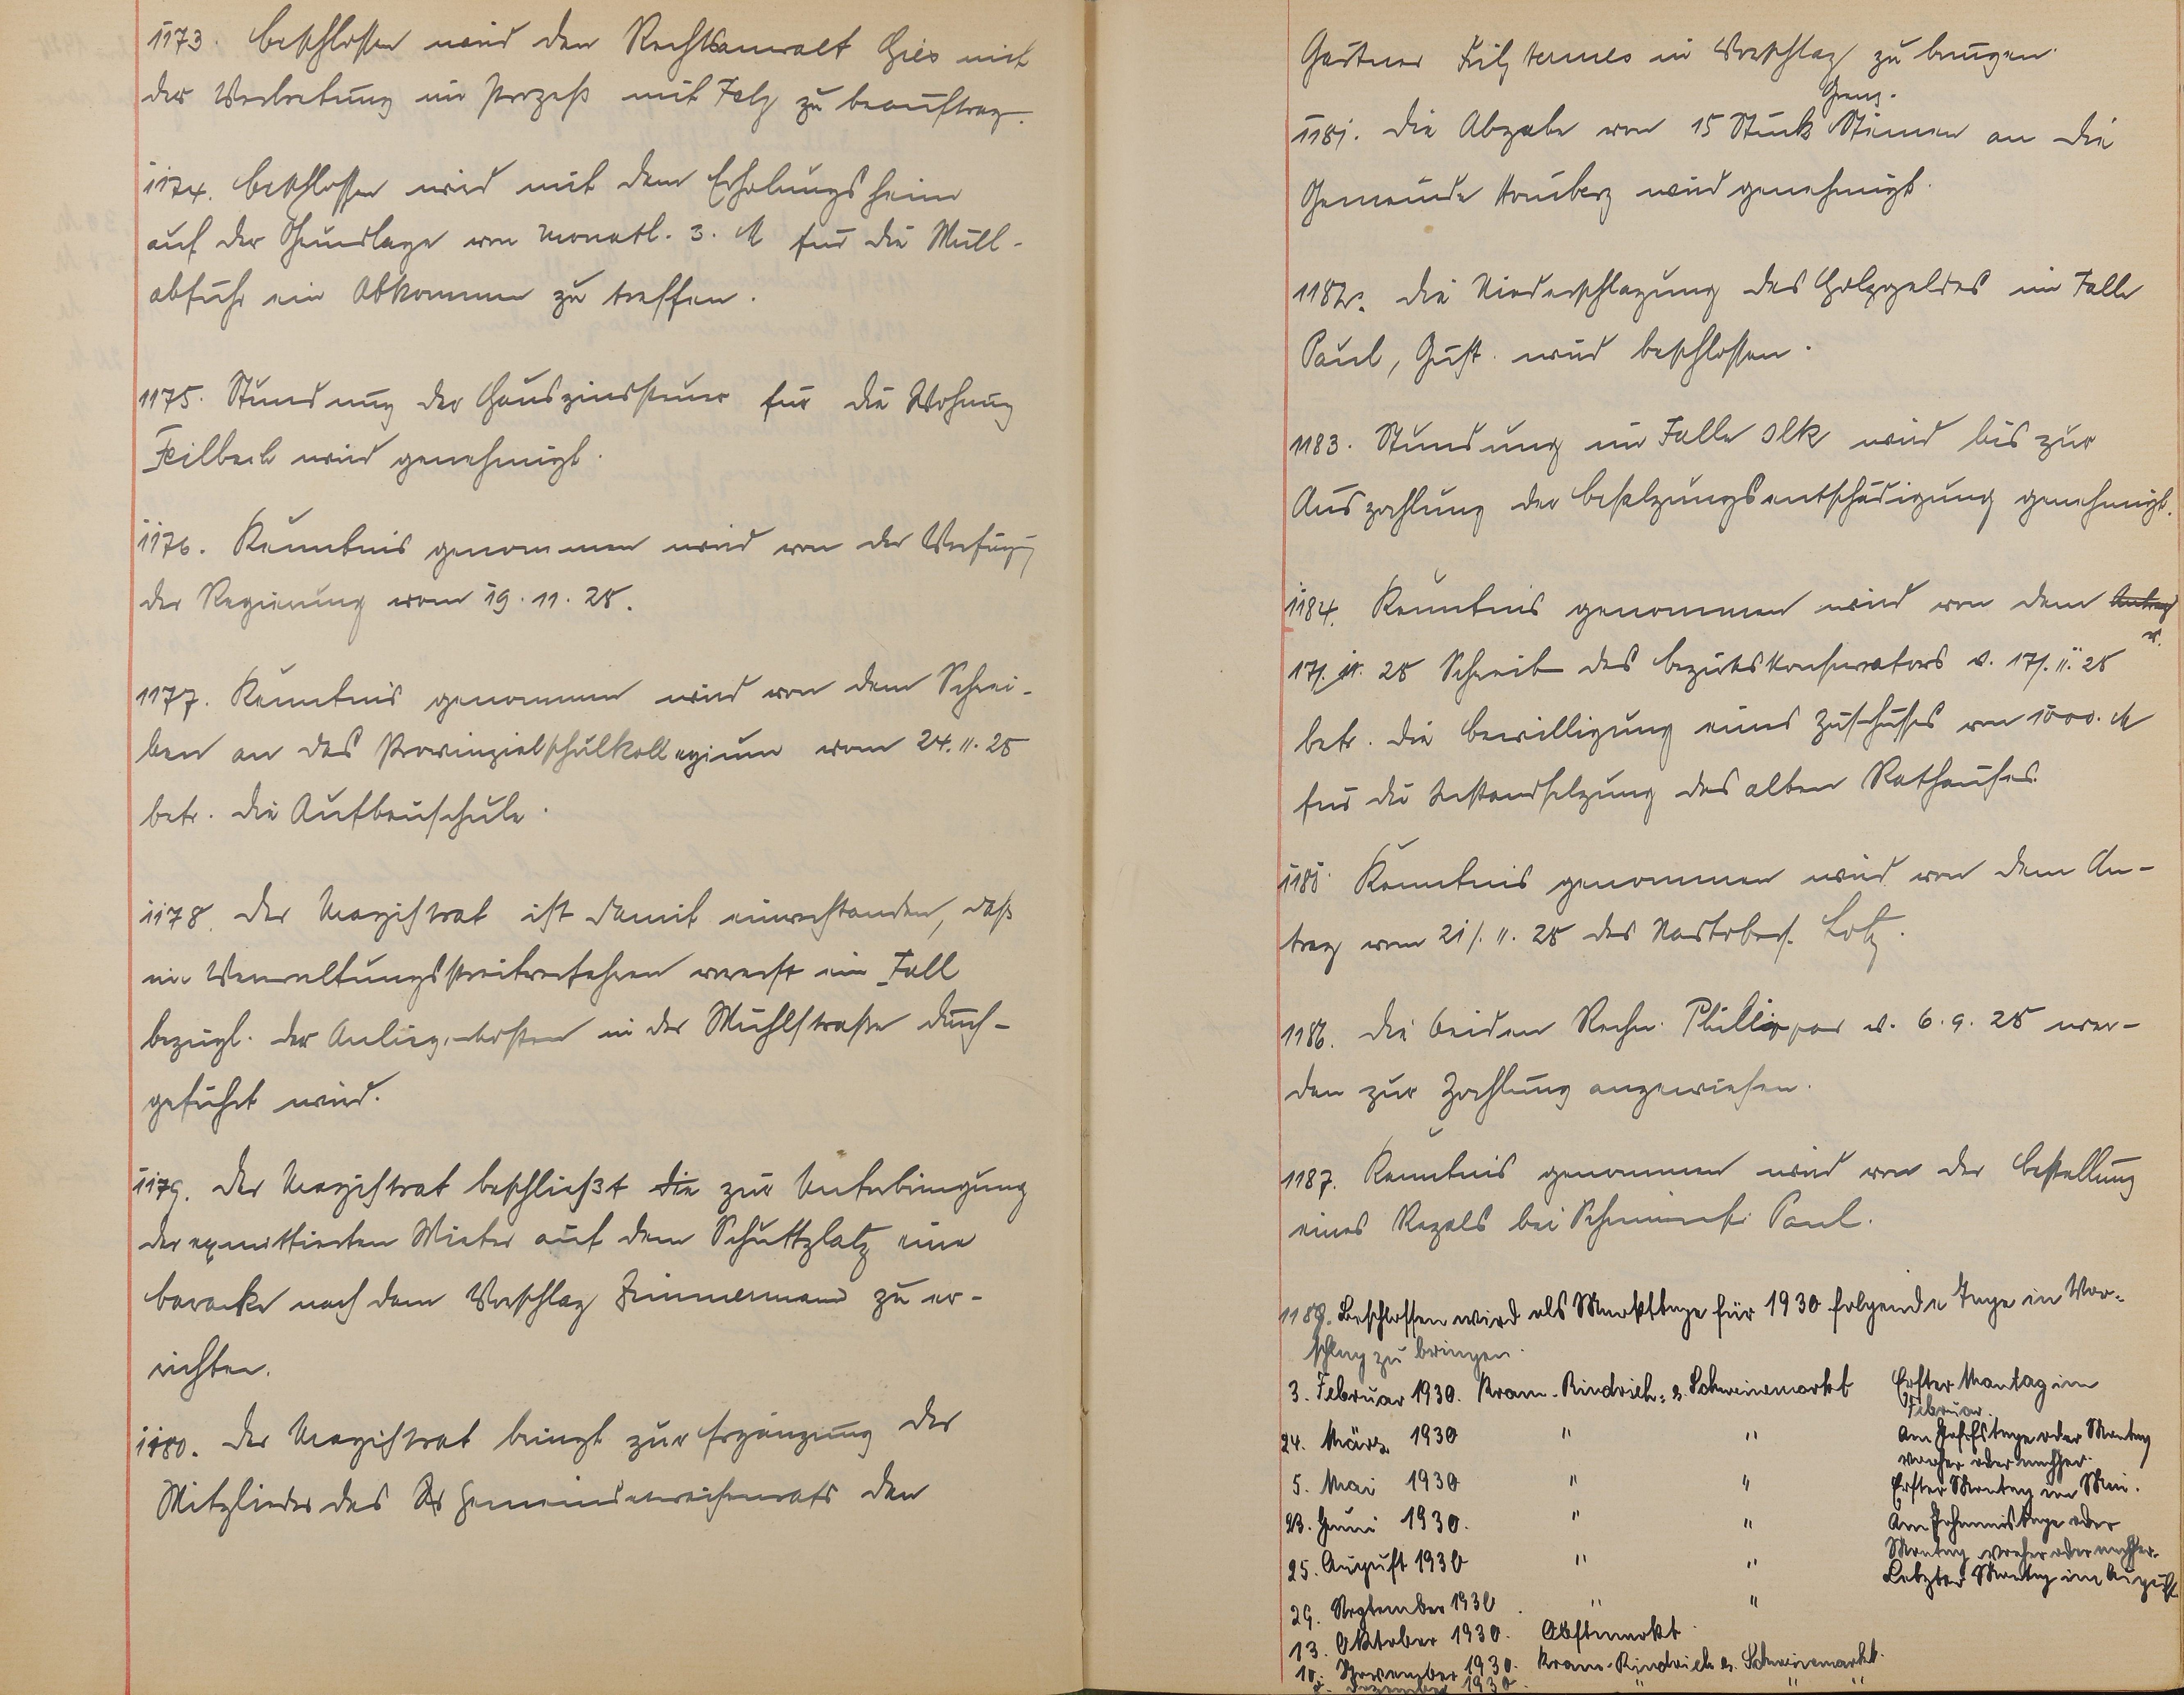 1173. Beschlossen wird den Rechtsanwalt Gies mit
der Vertretung im Prozeß mit Folz zu beauftrag.
1174. Beschlossen wird mit dem Erholungsheim
auf der Grundlage von monatl. 3. M für die Müll-
abfuhr ein Abkommen zu treffen.
1175. Stundung der Hauszinssteuer für die Wohnung
Feilbach wird genehmigt.
1176. Kenntnis genommen wird von der Verfügg
der Regierung vom 19.11.28.
1177. Kenntnis genommen wird von dem Schrei-
ben an das Provinzialschulkollegium vom 24.11.28
betr. die Aufbauschule.
1178. Der Magistrat ist damit einverstanden, daß
im Verwaltungsstreitverfahren vorerst ein Fall
bezügl. der Anliegerkosten in der Mühlstraße durch-
geführt wird.
1179. Der Magistrat beschließt die zur Unterbringung
der exmittierten Mieter auf dem Schuttplatz eine
Baracke nach dem Vorschlag Zimmermann zu er-
richten.
1180. Der Magistrat bringt zur Ergänzung der
Mitglieder des Gemeindewaisenrats den
Gärtner in Vorschlag zu bringen.
1181. Die Abgabe von 15 Stück Grenz-Steinen an die
Gemeinde Homberg wird genehmigt.
1182. Die Niederschlagung des Holzgeldes im Falle
Paul, Gust. wird beschlossen.
1183. Stundung im Falle Olk wird bis zur
Auszahlung der Besatzungsentschädigung genehmigt.
1184. Kenntnis genommen wird von dem Antrag v.
17/.11. 28 Schreib des Bezirkskonservators v. 17/.11.28
betr. die Bewilligung eines Zuschusses von 1000. M
für die Instandsetzung des alten Rathauses.
1185. Kenntnis genommen wird von dem An-
trag vom 21/.11.28 des Lotz.
1186. Die beiden Rechn. Philippar v. 6.9.28 wer-
den zur Zahlung angewiesen.
1187. Kenntnis genommen wird von der Bestellung
eines Regals bei Schreinerei Paul.
1188. Beschlossen wird als Markttage für 1930 folgende Tage in Vor-
schlag zu bringen.
3. Februar 1930. Kram-Rindvieh- u. Schweinemarkt Erster Montag im
Februar.
24. März 1930 " " Am Josefstage oder Montag
vorher oder nachher.
5. Mai 1930 " " Erster Montag im Mai.
23. Juni 1930. " " Am Johannistage oder
Montag vorher oder nachher.
25. August 1930 " " Letzter Montag im August
29. September 1930 " "
13. Oktober 1930. Obstmarkt.
10. November 1930. Kram-Rindvieh u. Schweinemarkt.
Dezember 1930. " " "